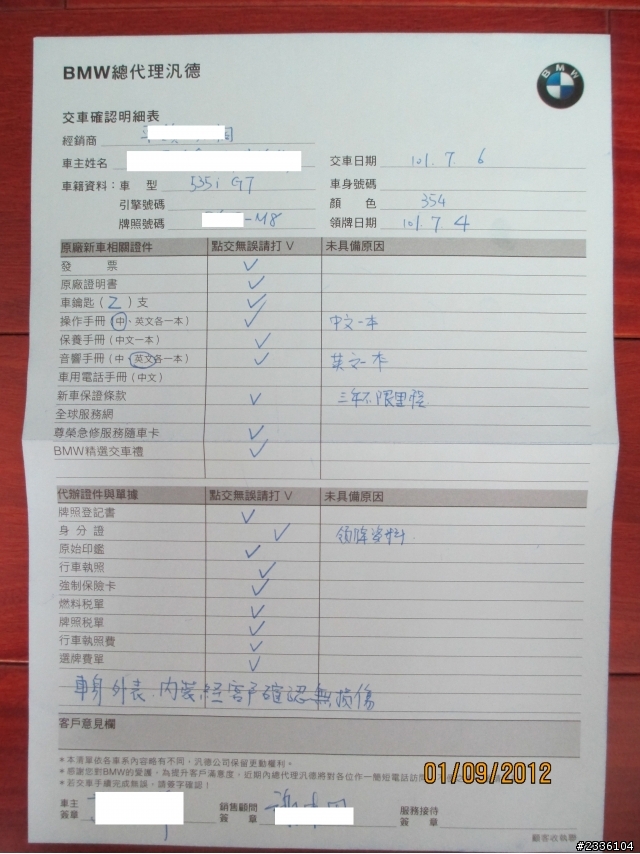 BMW總代理汎德
BMW
交車確認明細表
經銷商
車主姓名 交車日期 101. 7. 6
車籍資料：車 型 535i G7 車身號碼
引擎號碼 顏 色 354
牌照號碼 -M8 領牌日期 101. 7 4
原廠新車相關證件 點交無誤請打 V 未具備原因
發 票 ✓
原廠證明書 ✓
車鑰匙 ( 2 ) 支 ✓
操作手冊 (中、英文各一本) ✓ 中文一本
保養手冊 (中文一本) ✓
音響手冊 (中、英文各一本) ✓ 英文一本
車用電話手冊 (中文)
新車保證條款 ✓ 三年不限里程
全球服務網
尊榮急修服務隨車卡 ✓
BMW精選交車禮 ✓
代辦證件與單據 點交無誤請打 V 未具備原因
牌照登記書 ✓
身 分 證 ✓ 領牌資料
原始印鑑 ✓
行車執照 ✓
強制保險卡 ✓
燃料稅單 ✓
牌照稅單 ✓
行車執照費 ✓
選牌費單 ✓
車身外表、內裝經客戶確認無損傷
客戶意見欄
＊本清單依各車系內容略有不同，汎德公司保留更動權利。
＊感謝您對BMW的愛護，為提升客戶滿意度，近期內總代理汎德將對各位作一簡短電話訪問
＊若交車手續完成無誤，請簽字確認！
01/09/2012
車主 銷售顧問 服務接待
簽章 簽 章 簽 章
顧客收執聯
#2336104